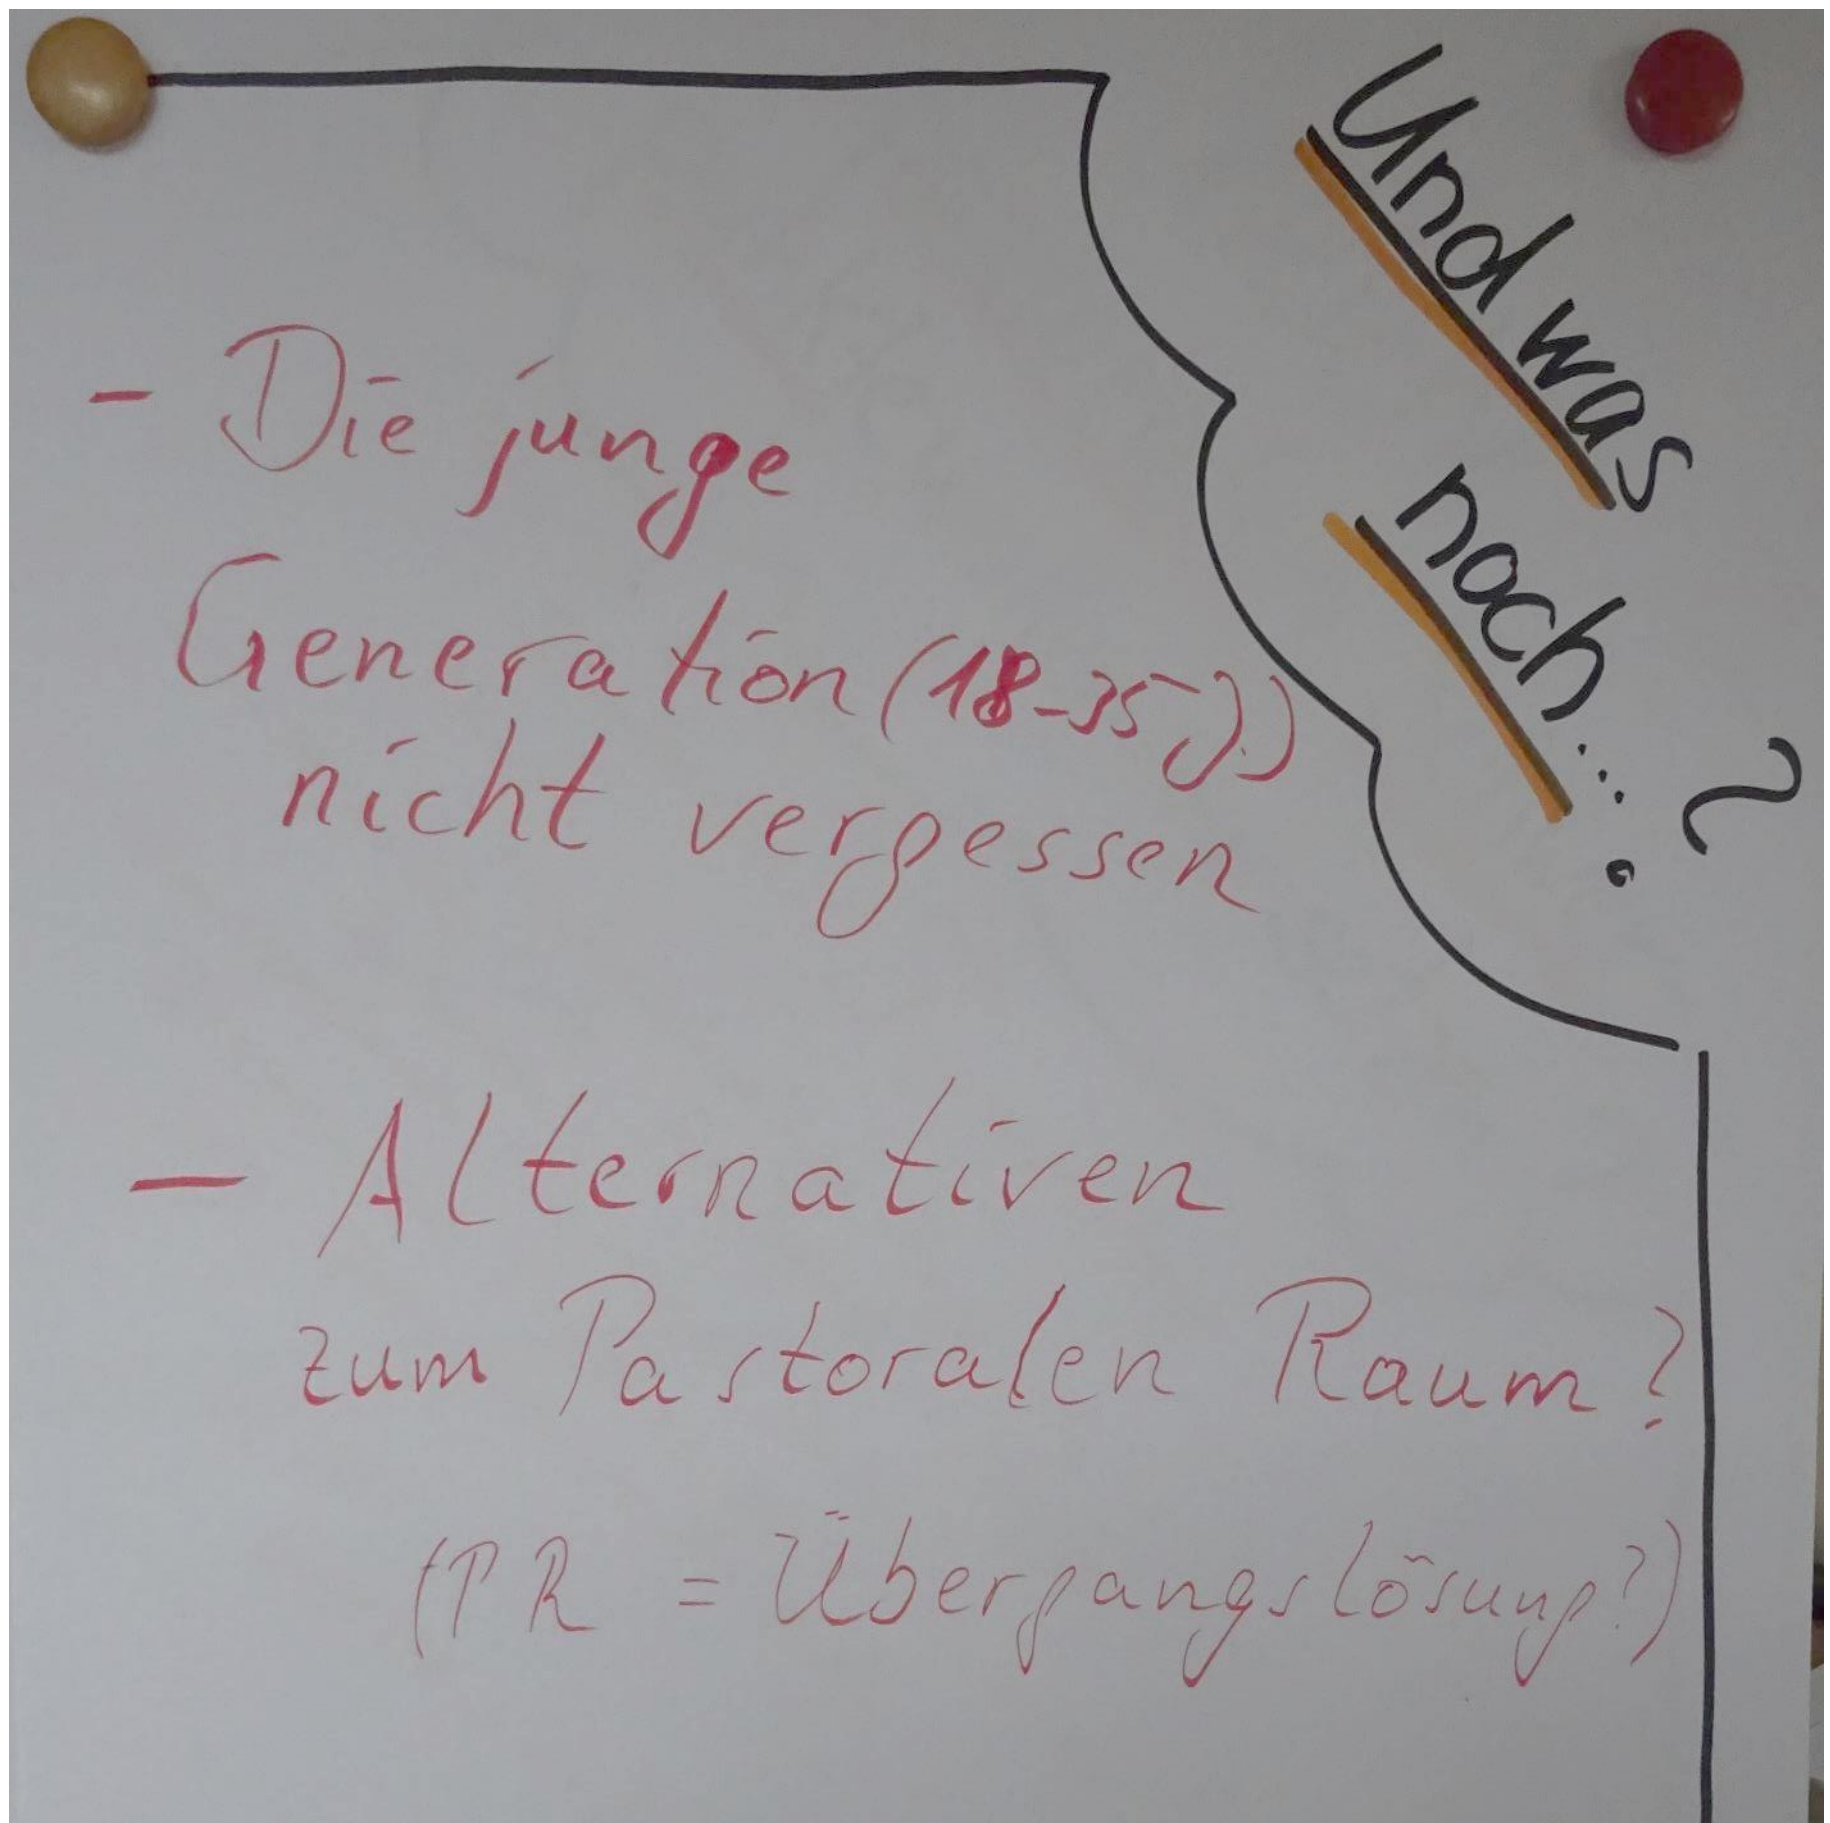 Und was
noch...?
- Die junge
Generation (18-35 J.)
nicht vergessen
- Alternativen
zum Pastoralen Raum?
(PR = Übergangslösung?)